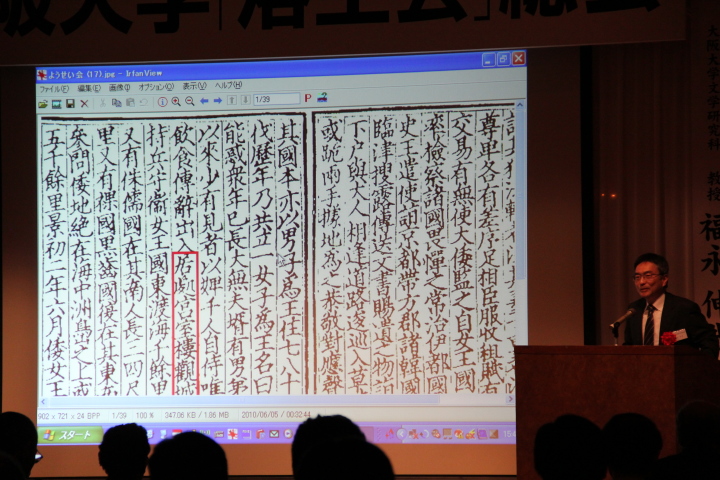 阪大学「洛工会」総会
ようせい会 (17).jpg - IrfanView
ファイル(F) 編集(E) 画像(I) オプション(O) 表示(V) ヘルプ(H)
1/39
尊卑各有差序足相臣服收租賦
交易有無使大倭監之自女王國
率檢察諸國畏憚之常治伊都國
史王遣使詣京都帶方郡諸韓國
臨津搜露傳送文書賜遺之物詣
下戶與大人相逢道路逡巡入草
或跪兩手據地為之恭敬對應聲
其國本亦以男子為王住七八十
伐歷年乃共立一女子為王名曰
能惑衆年已長大無夫婿有男弟
以來少有見者以婢千人自侍唯
飲食傳辭出入居處宮室樓觀城
持兵守衞女王國東渡海千餘里
又有侏儒國在其南人長三四尺
里又有裸國黑齒國復在其東南
參問倭地絕在海中洲島之上或
五千餘里景初二年六月倭女王
902 x 721 x 24 BPP 1/39 100 % 347.06 KB / 1.86 MB 2010/06/05 / 00:32:44
スタート
大阪大学文学研究科 教授 福永 伸